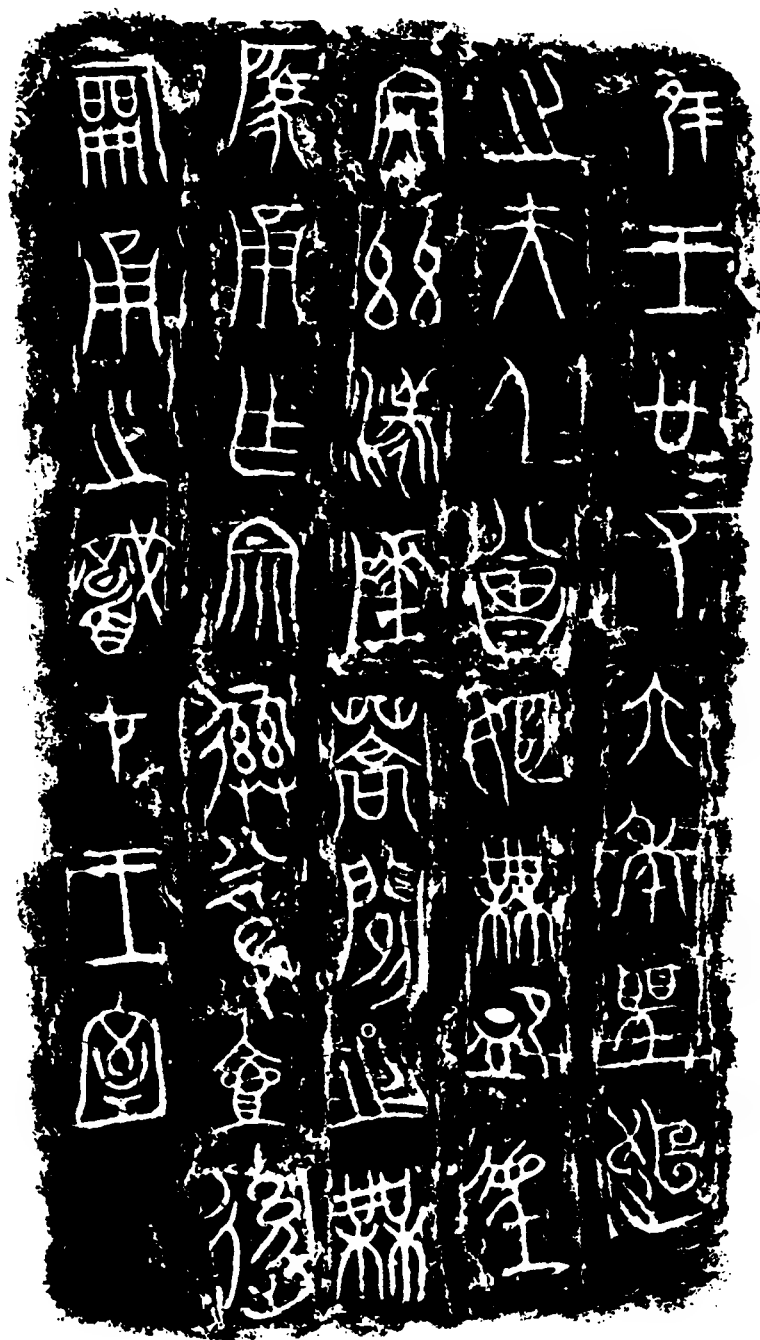 隹王廿又六年聖趄
之夫人曾姬無卹望
安茲漾陵蒿間之無
匹甬乍宗彝尊壺後
嗣甬之職才王室